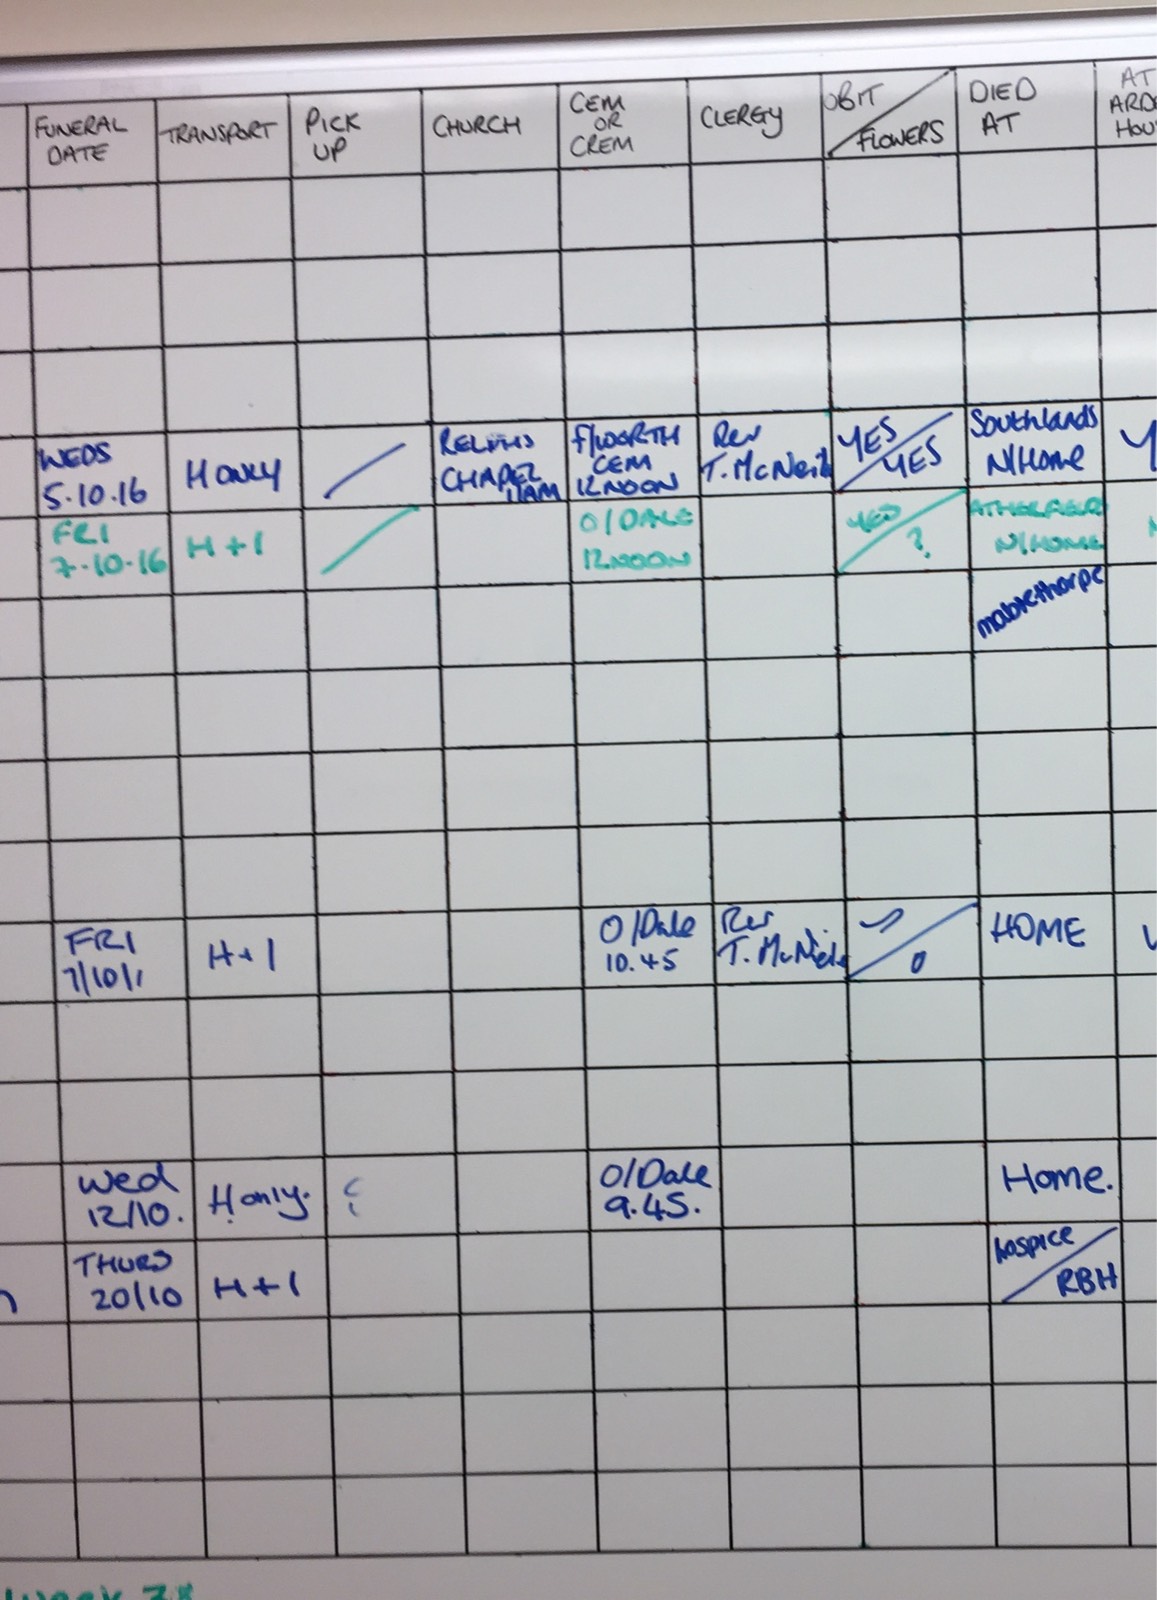 FUNERAL DATE
TRANSPORT
PICK UP
CHURCH
CEM OR CREM
CLERGY
OBIT / FLOWERS
DIED AT
AT
WEDS
5.10.16
H ONLY
CHAPEL 11AM
F/WORTH CEM 12 NOON
Rev T. McNeil
YES / YES
Southlands N/Home
FRI
7.10.16
H + 1
O/DALE 12 NOON
YES / ?
N/HOME
mablethorpe
FRI
H + 1
O/Dale 10.45
Rev T. McNeil
HOME
Wed
12/10.
H only.
O/Dale 9.45.
Home.
THURS
20/10
H + 1
hospice / RBH
week